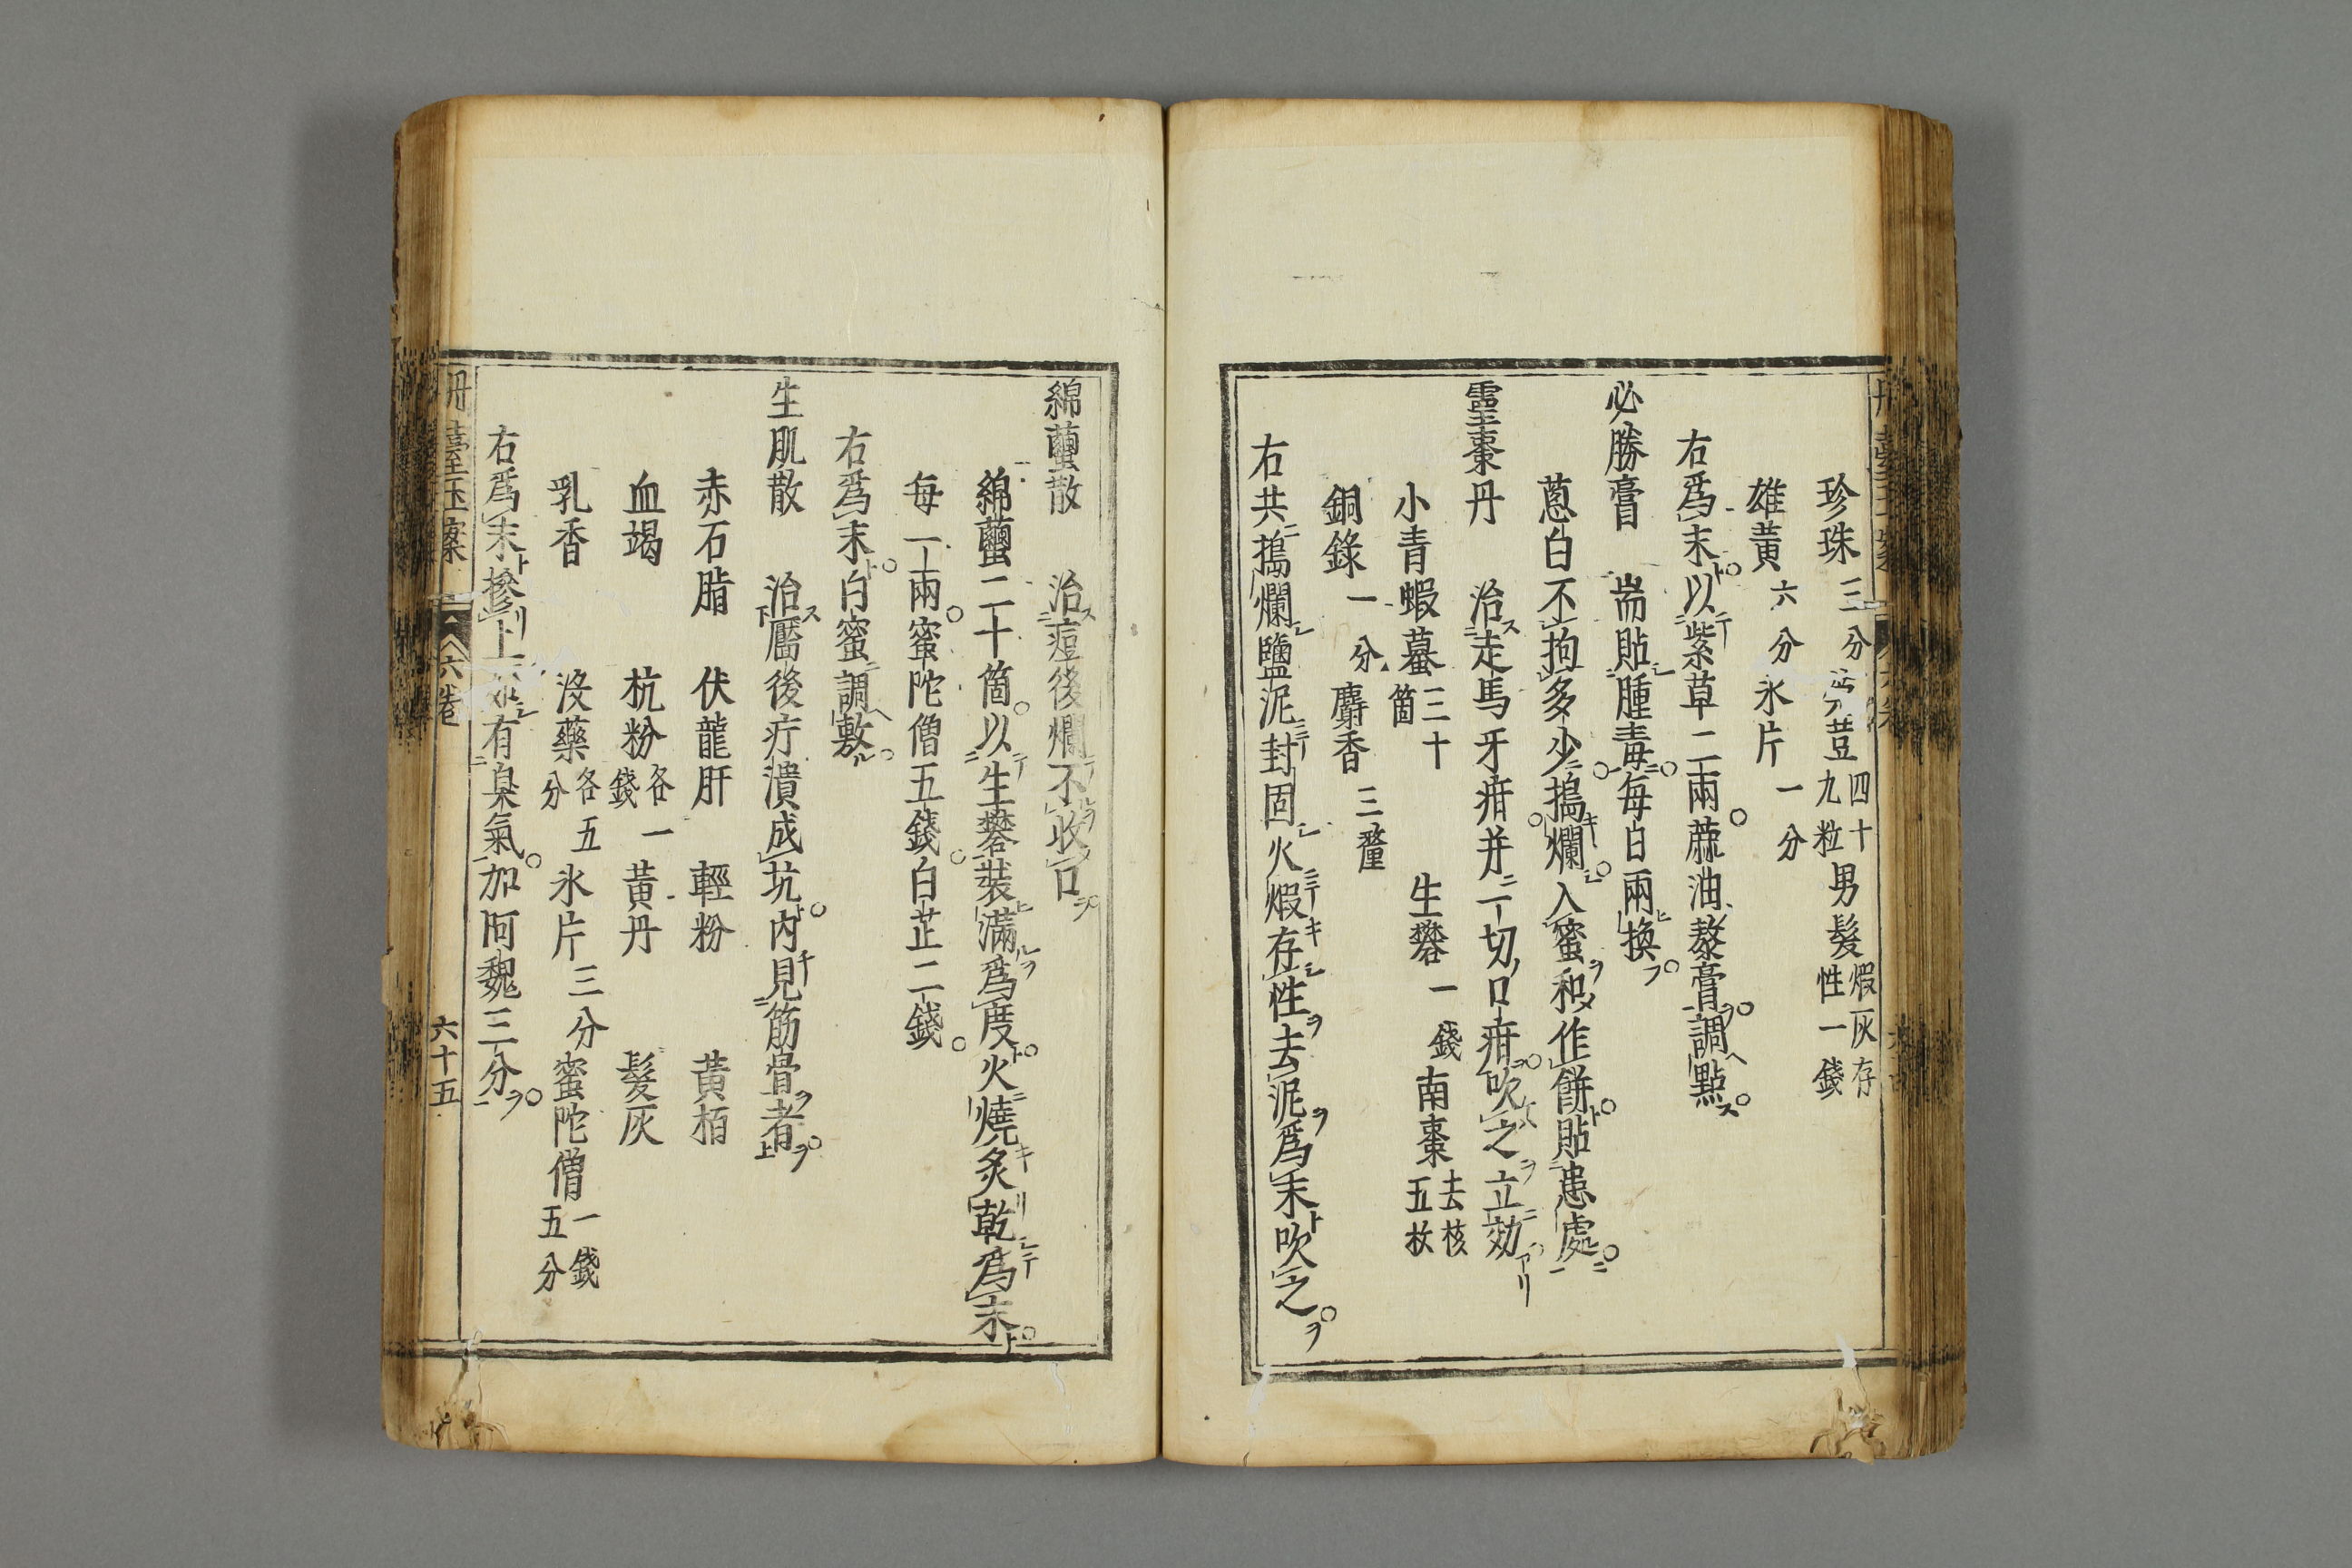 珍珠三分 豌豆四十九粒 男髮煆灰存性一錢
雄黃六分 氷片一分
右爲末以紫草二兩蔴油熬膏調點
必勝膏 耑貼腫毒每白兩換
蔥白不拘多少搗爛入蜜和作餅貼患處
靈棗丹 治走馬牙疳并一切口疳吹之立効
小青蝦蟇三十箇 生礬一錢 南棗去核五枚
銅綠一分 麝香三釐
右共搗爛鹽泥封固火煆存性去泥爲末吹之
綿蠒散 治痘後爛不收口
綿蠒二十箇以生礬裝滿爲度火燒炙乾爲末
每一兩蜜陀僧五錢白芷二錢
右爲末白蜜調敷
生肌散 治靨後疔潰成坑內見筋骨者
赤石脂 伏龍肝 輕粉 黃栢
血竭 杭粉各一錢 黃丹 髮灰
乳香 沒藥各五分 氷片三分 蜜陀僧一錢五分
右爲末摻上如有臭氣加阿魏三分
丹臺玉案 六卷 六十五